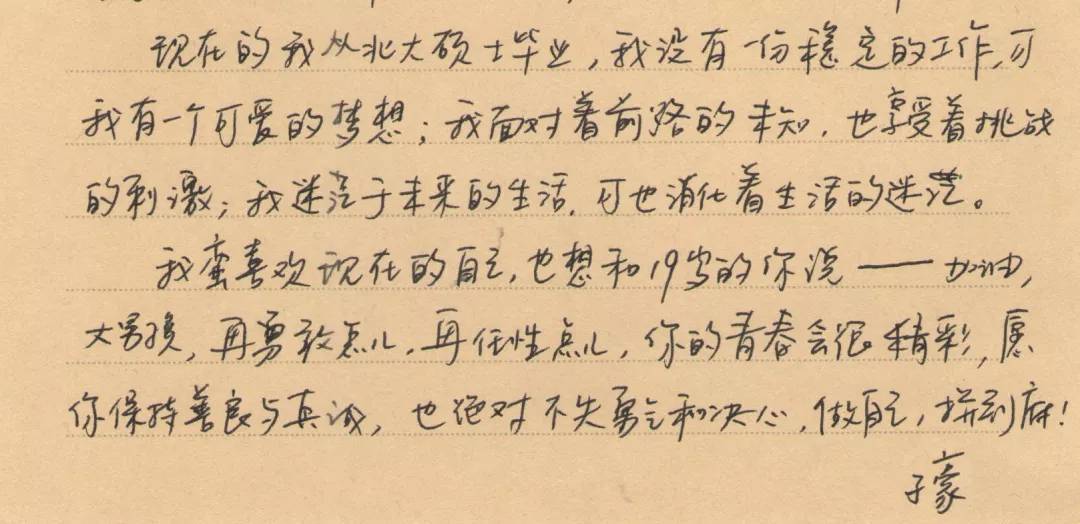 现在的我从北大硕士毕业，我没有一份稳定的工作，可
我有一个可爱的梦想；我面对着前路的未知，也享受着挑战
的刺激；我迷茫于未来的生活，可也消化着生活的迷茫。
我蛮喜欢现在的自己，也想和19岁的你说——加油，
大男孩，再勇敢点儿，再任性点儿，你的青春会很精彩，愿
你保持善良与真诚，也绝对不失勇气和决心，做自己，拼到底！
子豪